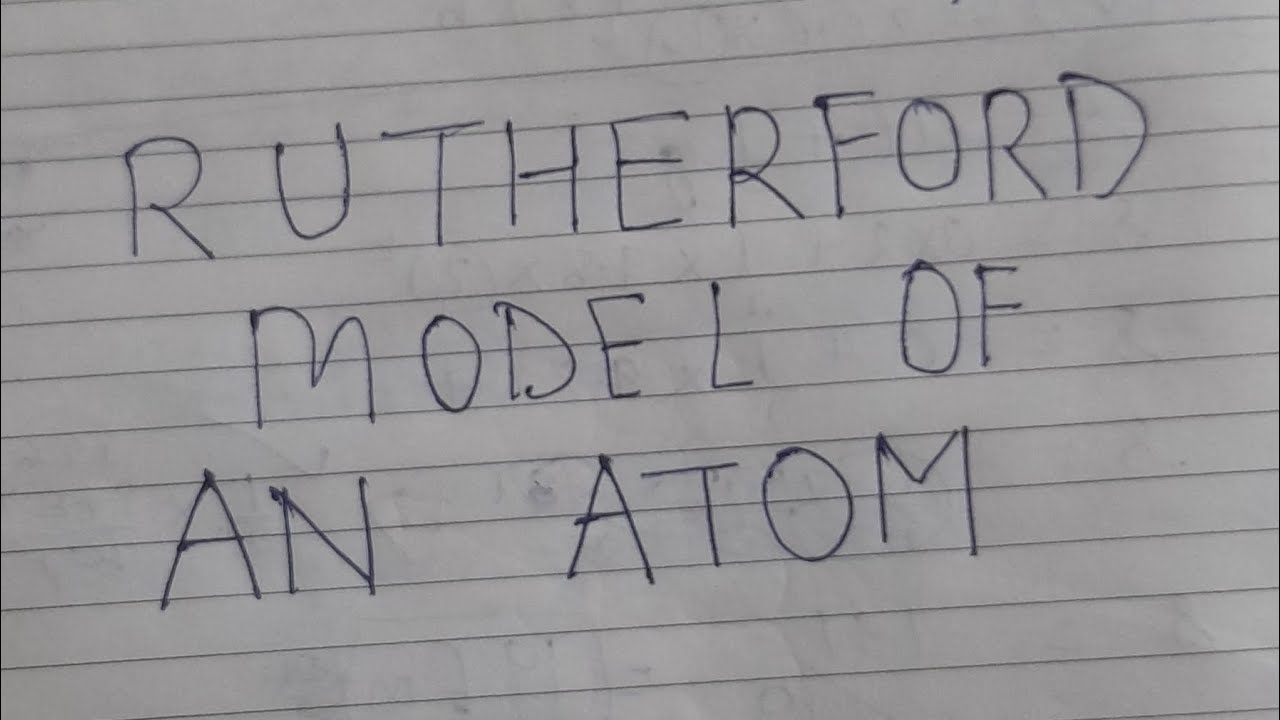 RUTHERFORD
MODEL OF
AN ATOM